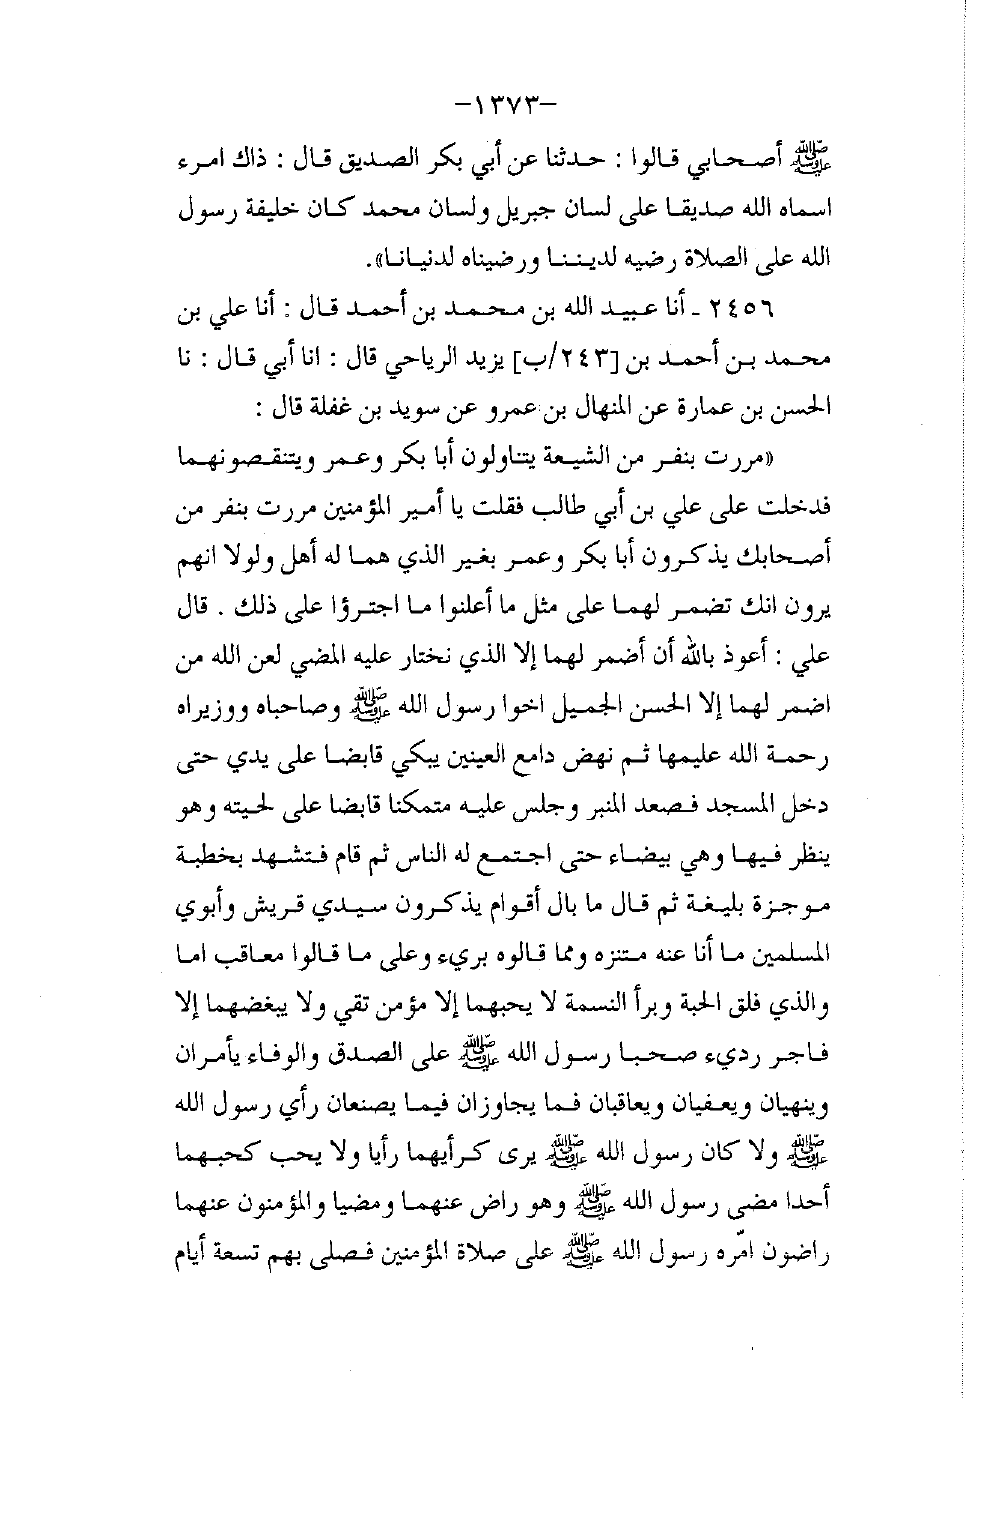 -١٣٧٣-
ﷺ أصحابي قالوا : حدثنا عن أبي بكر الصديق قال : ذاك امرء
اسماه الله صديقا على لسان جبريل ولسان محمد كان خليفة رسول
الله على الصلاة رضيه لديننا ورضيناه لدنيانا».
٢٤٥٦ ـ أنا عبيد الله بن محمد بن أحمد قال : أنا علي بن
محمد بن أحمد بن [٢٤٣/ب] يزيد الرياحي قال : انا أبي قال : نا
الحسن بن عمارة عن المنهال بن عمرو عن سويد بن غفلة قال :
«مررت بنفر من الشيعة يتناولون أبا بكر وعمر ويتنقصونهما
فدخلت على علي بن أبي طالب فقلت يا أمير المؤمنين مررت بنفر من
أصحابك يذكرون أبا بكر وعمر بغير الذي هما له أهل ولولا انهم
يرون انك تضمر لهما على مثل ما أعلنوا ما اجترؤا على ذلك . قال
علي : أعوذ بالله أن أضمر لهما إلا الذي نختار عليه المضي لعن الله من
اضمر لهما إلا الحسن الجميل اخوا رسول الله ﷺ وصاحباه ووزيراه
رحمة الله عليهما ثم نهض دامع العينين يبكي قابضا على يدي حتى
دخل المسجد فصعد المنبر وجلس عليه متمكنا قابضا على لحيته وهو
ينظر فيها وهي بيضاء حتى اجتمع له الناس ثم قام فتشهد بخطبة
موجزة بليغة ثم قال ما بال أقوام يذكرون سيدي قريش وأبوي
المسلمين ما أنا عنه متنزه ومما قالوه بريء وعلى ما قالوا معاقب اما
والذي فلق الحبة وبرأ النسمة لا يحبهما إلا مؤمن تقي ولا يبغضهما إلا
فاجر رديء صحبا رسول الله ﷺ على الصدق والوفاء يأمران
وينهيان ويعفيان ويعاقبان فما يجاوزان فيما يصنعان رأي رسول الله
ﷺ ولا كان رسول الله ﷺ يرى كرأيهما رأيا ولا يحب كحبهما
أحدا مضى رسول الله ﷺ وهو راض عنهما ومضيا والمؤمنون عنهما
راضون امّره رسول الله ﷺ على صلاة المؤمنين فصلى بهم تسعة أيام